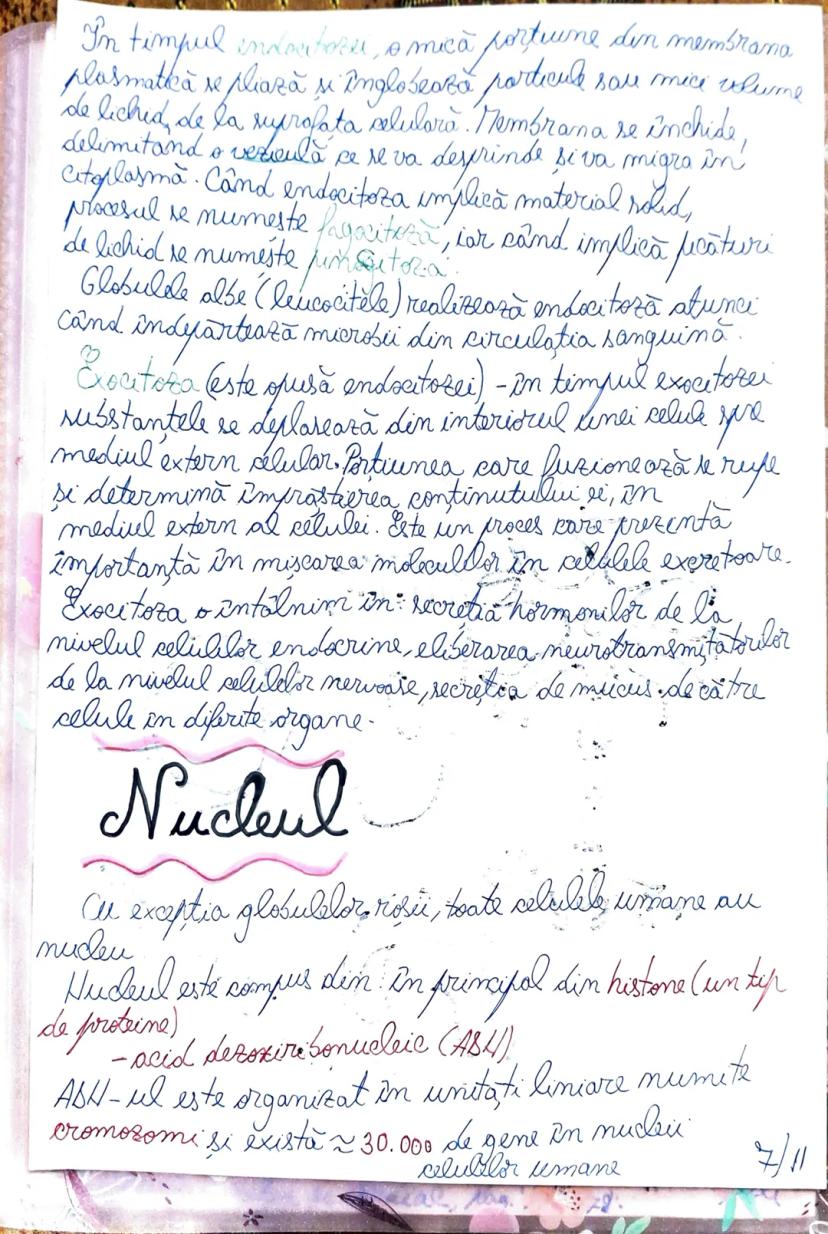 În timpul endocitozei, o mică porțiune din membrana
plasmatică se pliază și înglobează particule sau mici volume
de lichid, de la suprafața celulară. Membrana se închide,
delimitând o veziculă ce se va desprinde și va migra în
citoplasmă. Când endocitoza implică material solid,
procesul se numește fagocitoză, iar când implică picături
de lichid se numește pinocitoza.
Globulele albe (leucocitele) realizează endocitoză atunci
când îndepărtează microbii din circulația sanguină.
Exocitoza (este opusă endocitozei) - în timpul exocitozei
substanțele se deplasează din interiorul unei celule spre
mediul extern celular. Porțiunea care fuzionează se rupe
și determină împrăștierea conținutului ei, în
mediul extern al celulei. Este un proces care prezentă
importanță în mișcarea moleculelor în celulele excretoare.
Exocitoza o întâlnim în: secreția hormonilor de la
nivelul celulelor endocrine, eliberarea neurotransmițătorilor
de la nivelul celulelor nervoase, secreția de mucus de către
celule în diferite organe.
Nucleul
Cu excepția globulelor roșii, toate celulele umane au
nucleu
Nucleul este compus din: în principal din histone (un tip
de proteine)
- acid dezoxiribonucleic (ADN)
ADN-ul este organizat în unități liniare numite
cromozomi și există ≈ 30.000 de gene în nucleii
celulelor umane
7/11